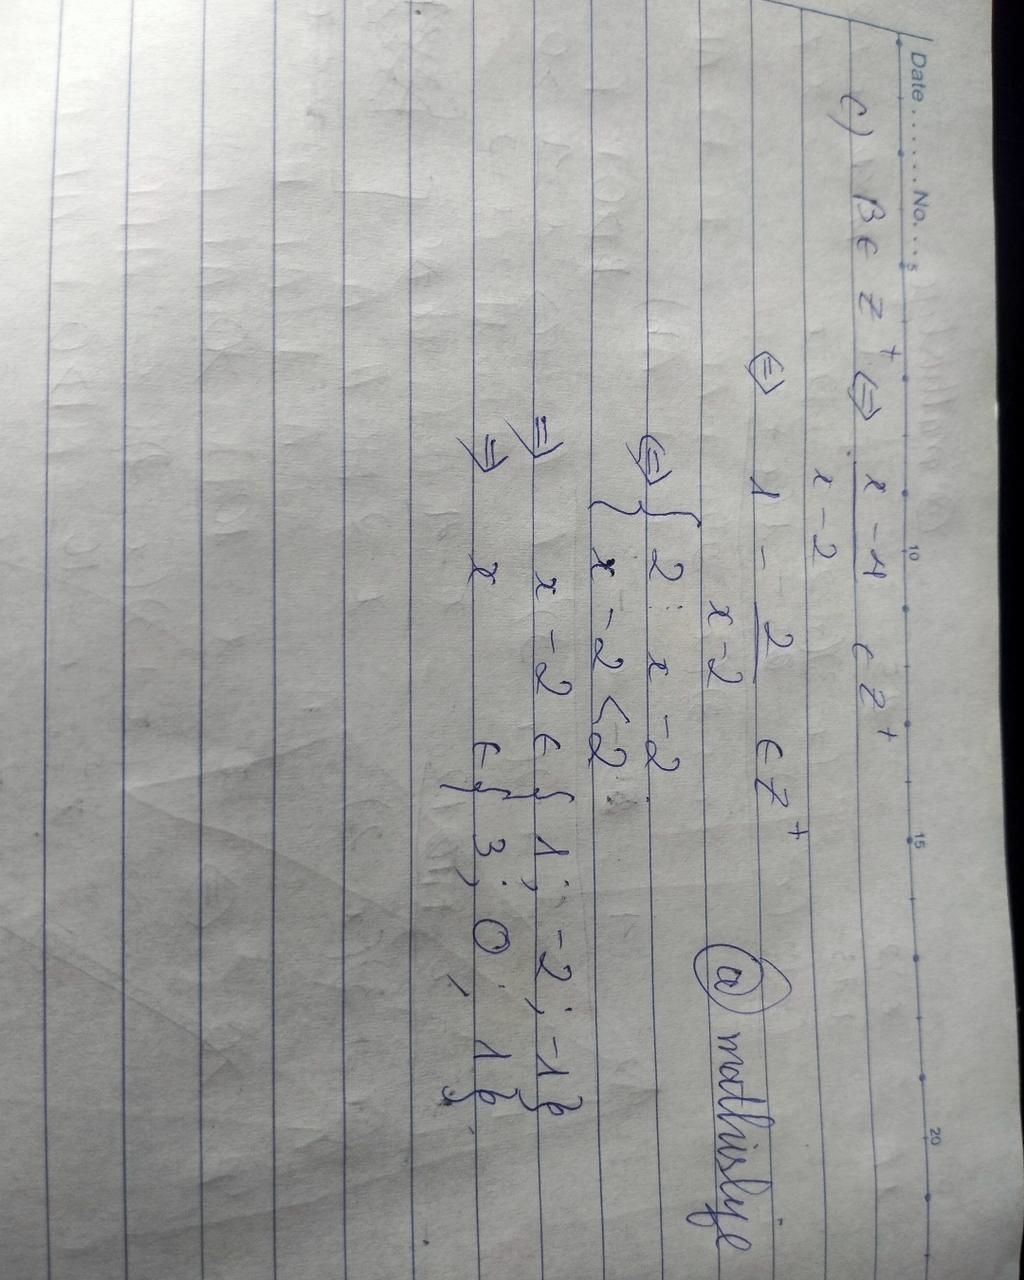 Date ....... No. ...
5 10 15 20
c) B ∈ Z⁺ ⇔ x - 4 / x - 2 ∈ Z⁺
⇔ 1 - 2 / x - 2 ∈ Z⁺
@mathislife
⇔ { 2 ⋮ x - 2
{ x - 2 < 2
⇒ x - 2 ∈ { 1; -2; -1 }
⇒ x ∈ { 3; 0; 1 }